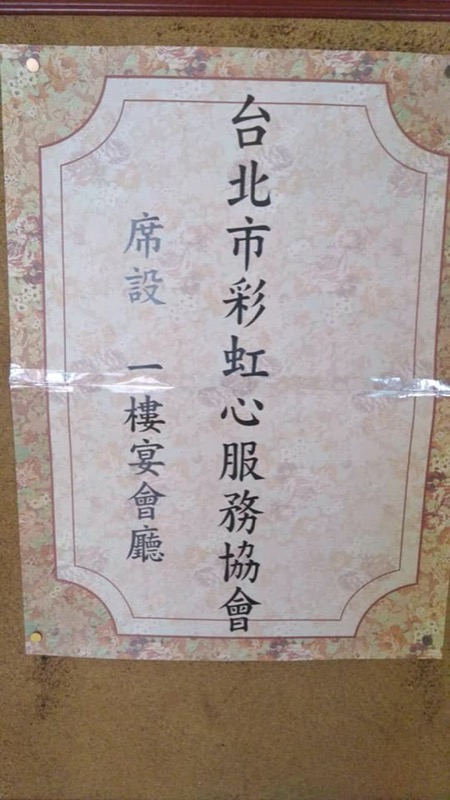 台北市彩虹心服務協會
席設 一樓宴會廳